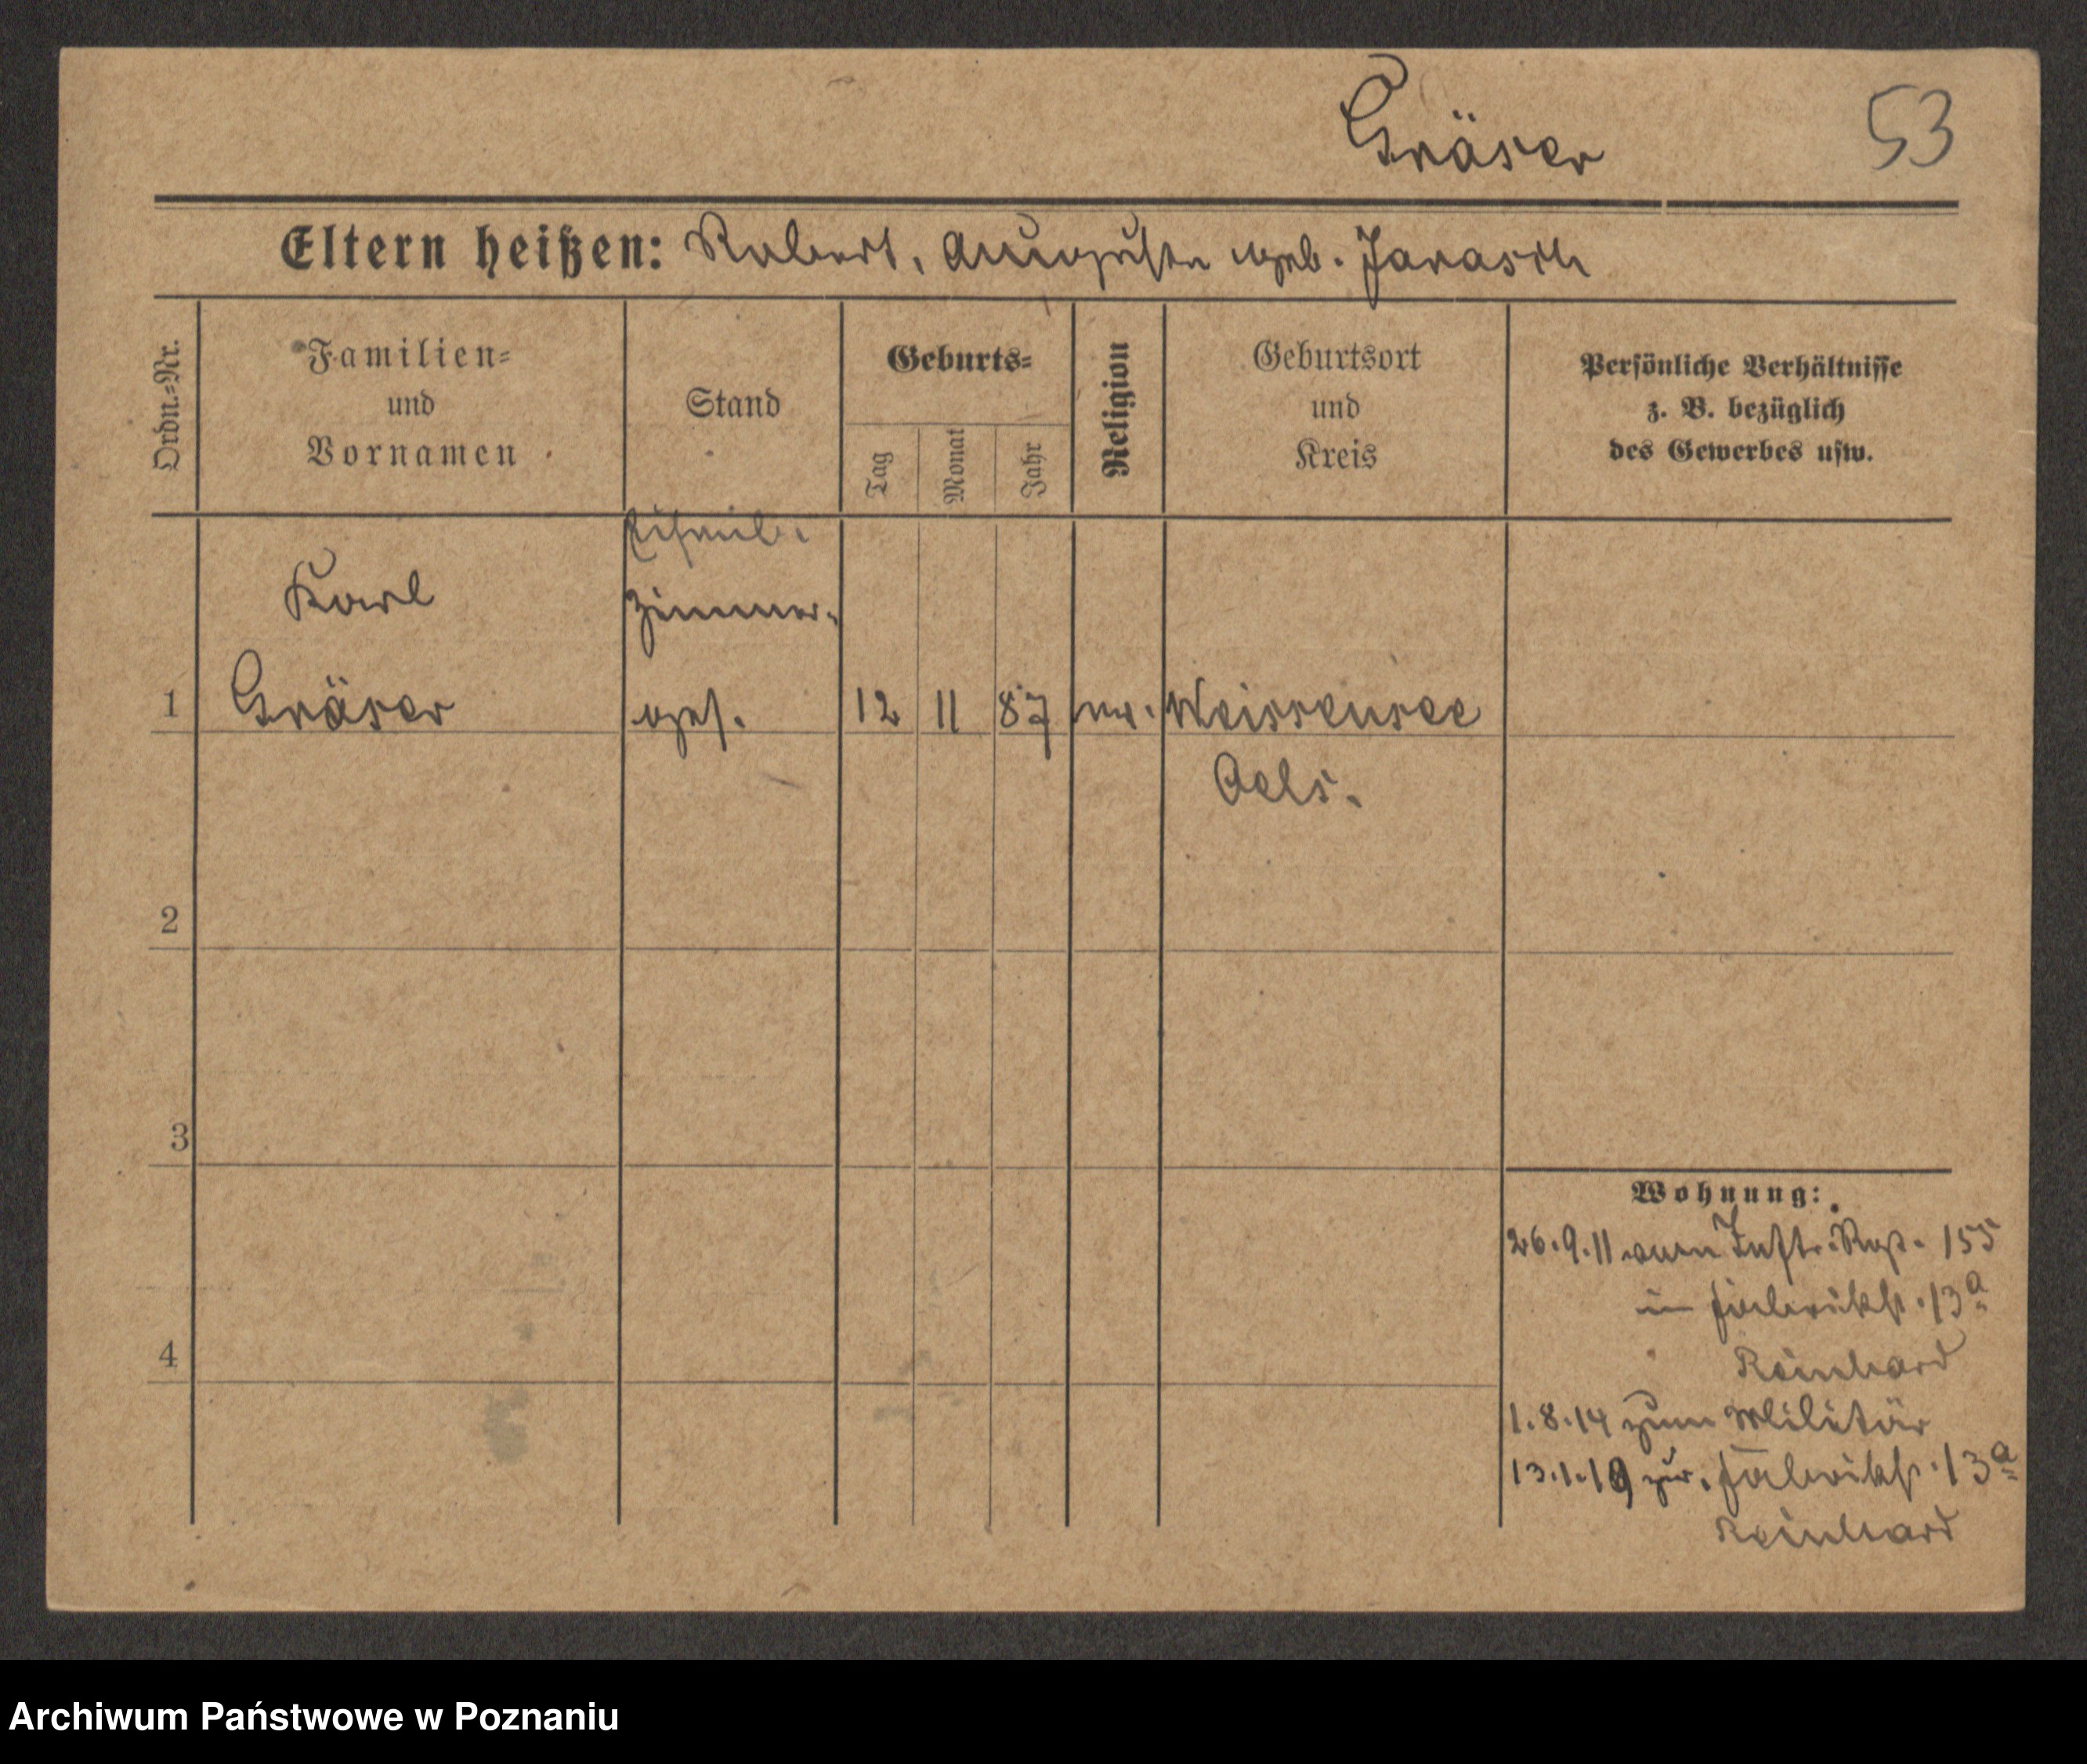 Gräser 53
Eltern heißen: Robert, Auguste geb. Jarasch
Ordn.-Nr.
Familien-
und
Vornamen
Stand
Geburts-
Tag
Monat
Jahr
Religion
Geburtsort
und
Kreis
Persönliche Verhältnisse
z. B. bezüglich
des Gewerbes usw.
Karl
Zimmer-
1 Gräser ges. 12 11 87 ev. Weissensee
Oels.
2
3
Wohnung:
26.9.11 vom Inftr. Rgt. 155
in Fabrikst. 13a
4
Reinhard
1.8.14 zum Militär
13.1.19 zur. Fabrikst. 13a
Reinhard
Archiwum Państwowe w Poznaniu